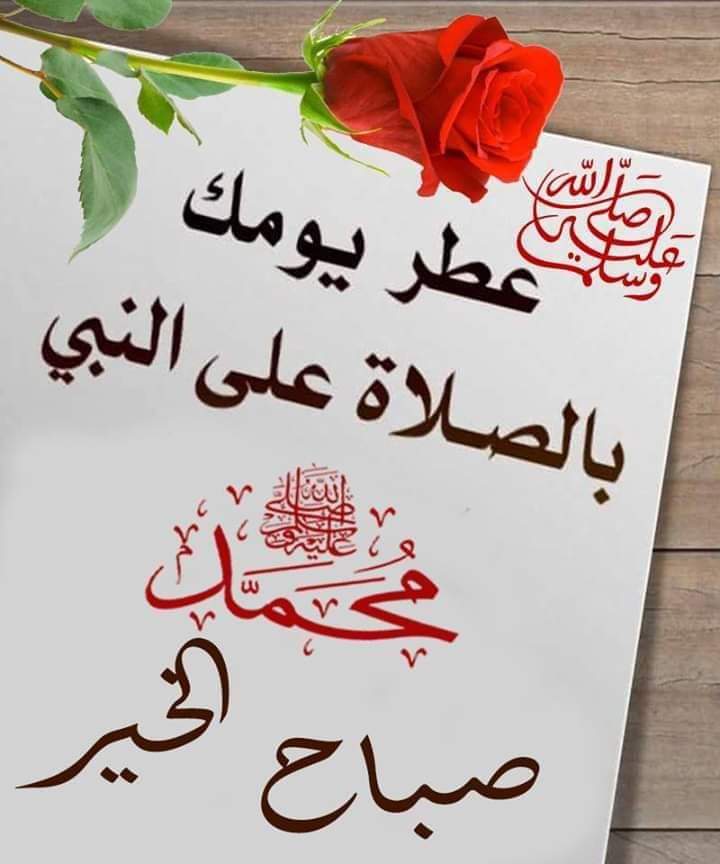 صلى الله عليه وسلم
عطر يومك
بالصلاة على النبي
صلى الله عليه وسلم
محمد
صباح الخير